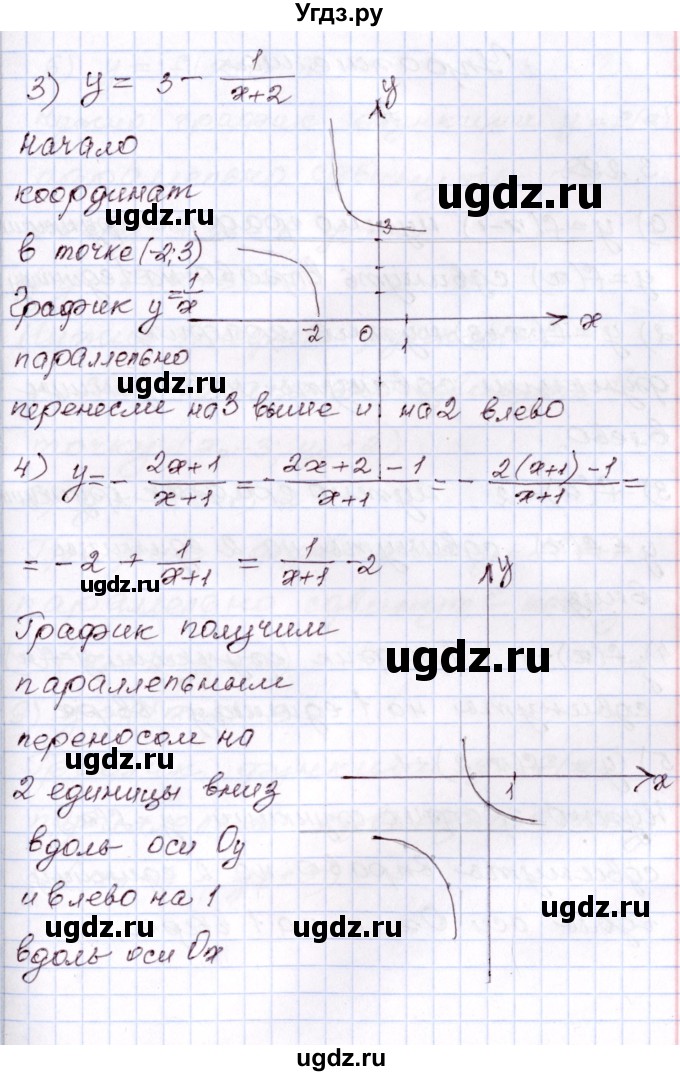 Угдз.ру
3) y = 3 - 1/(x+2)
y
начало
координат
ugdz.ru
ugdz.ru
3
в точке (-2;3)
График y = 1/x
-2 0 1 x
параллельно
ugdz.ru
ugdz.ru
перенесли на 3 выше и на 2 влево
4) y = - (2x+1)/(x+1) = - (2x+2-1)/(x+1) = - (2(x+1)-1)/(x+1) =
= -2 + 1/(x+1) = 1/(x+1) - 2
ugdz.ru
y
График получим
ugdz.ru
параллельным
переносом на
ugdz.ru
ugdz.ru
2 единицы вниз
1 x
вдоль оси Oy
и влево на 1
ugdz.ru
ugdz.ru
вдоль оси Ox
ugdz.ru